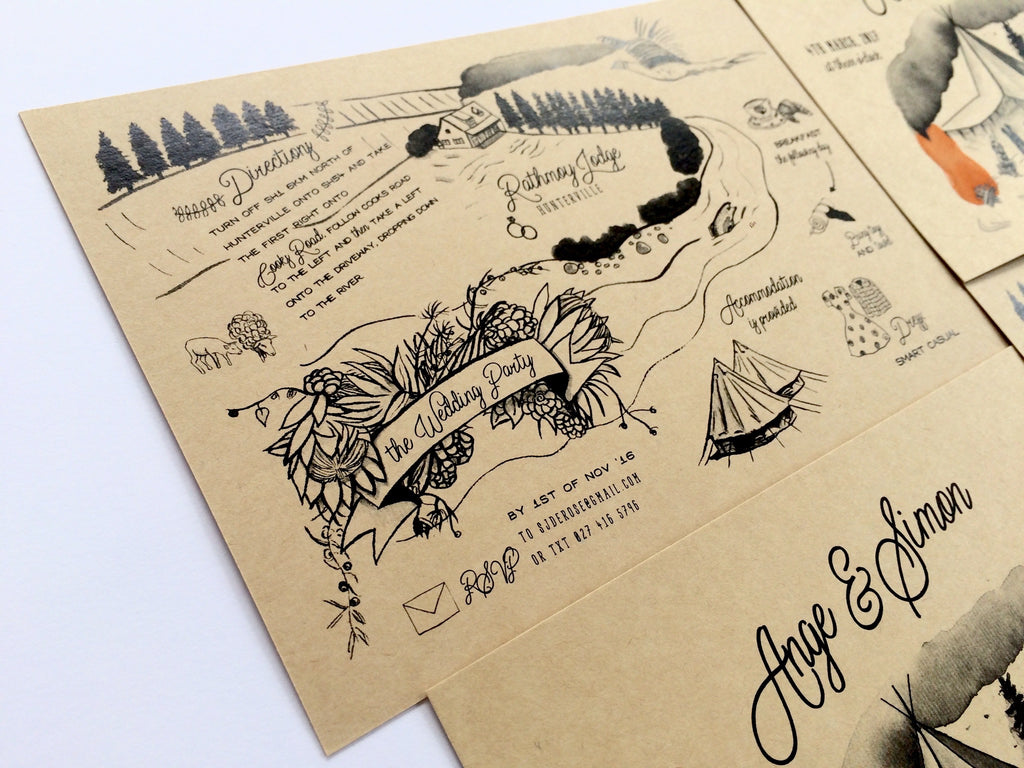 Directions
TURN OFF SH1 6KM NORTH OF
HUNTERVILLE ONTO SH54 AND TAKE
THE FIRST RIGHT ONTO
Cooks Road. FOLLOW COOKS ROAD
TO THE LEFT AND then TAKE A LEFT
ONTO THE DRIVEWAY, DROPPING DOWN
TO THE RIVER
Rathmoy Lodge
HUNTERVILLE
BREAKFAST
the following day
AND
Accommodation
is provided
Dress
SMART CASUAL
the Wedding Party
BY 1ST OF NOV '16
TO SJDEROSE@GMAIL.COM
OR TXT 027 416 5796
RSVP
4TH MARCH, 2017
at three o'clock
Ange & Simon